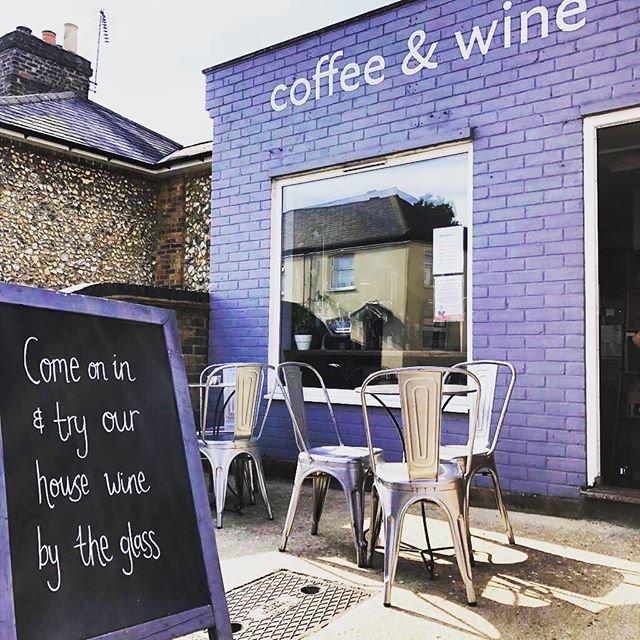 coffee & wine
Come on in
& try our
house wine
by the glass